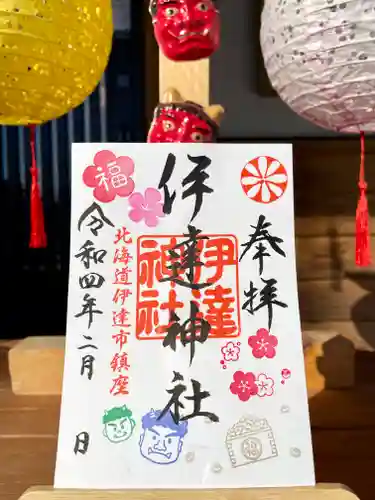 奉拝
伊達神社
伊達神社
福
北海道伊達市鎮座
令和四年二月
日